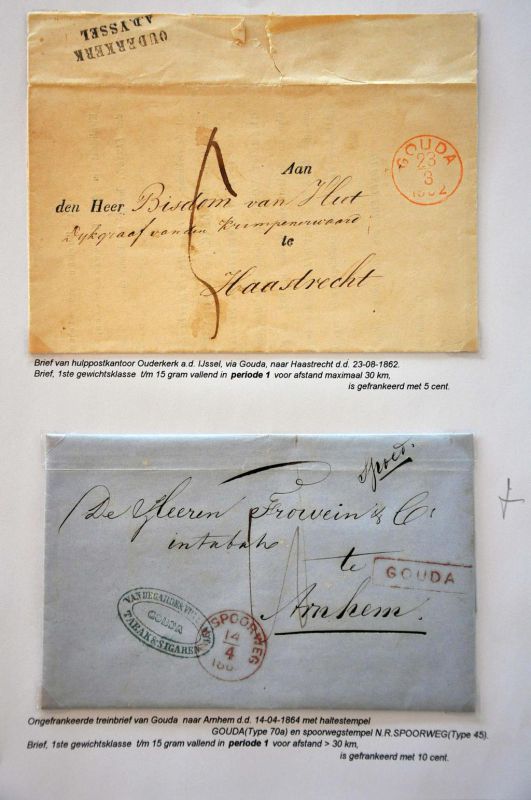 OUDERKERK
A.D. YSSEL
GOUDA
23
3
1862
5
Aan
den Heer Bisdom van Vliet
Dijkgraaf van den Krimpenerwaard
te
Haastrecht
Brief van hulppostkantoor Ouderkerk a.d. IJssel, via Gouda, naar Haastrecht d.d. 23-08-1862.
Brief, 1ste gewichtsklasse t/m 15 gram vallend in periode 1 voor afstand maximaal 30 km,
is gefrankeerd met 5 cent.
Spoed.
De Heeren Frowein & Co
in tabak
te
GOUDA
Arnhem.
GOUDA
TABAK & SIGAREN
SPOORWEG
14
4
Ongefrankeerde treinbrief van Gouda naar Arnhem d.d. 14-04-1864 met haltestempel
GOUDA(Type 70a) en spoorwegstempel N.R.SPOORWEG(Type 45).
Brief, 1ste gewichtsklasse t/m 15 gram vallend in periode 1 voor afstand > 30 km,
is gefrankeerd met 10 cent.